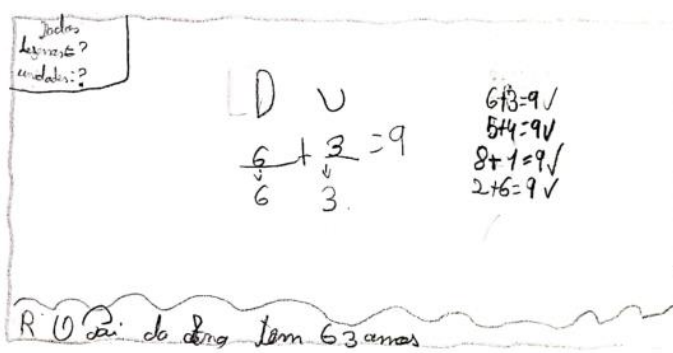 Dados
dezenas: ?
unidades: ?
D U
6 + 3 = 9
6 3.
6+3=9 ✓
5+4=9 ✓
8+1=9 ✓
2+6=9 ✓
R: O Pai do tem 63 anos